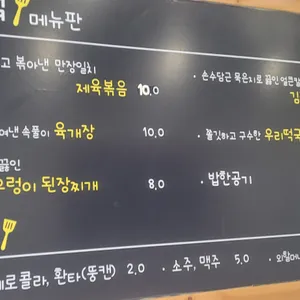 메뉴판
볶아낸 만장일치
제육볶음 10.0
속풀이 육개장 10.0
끓인
된장찌개 8.0
환타(뚱캔) 2.0
· 손수담근 묵은지로 끓인
쫄깃하고 구수한 우리떡국
· 밥한공기
· 소주, 맥주 5.0